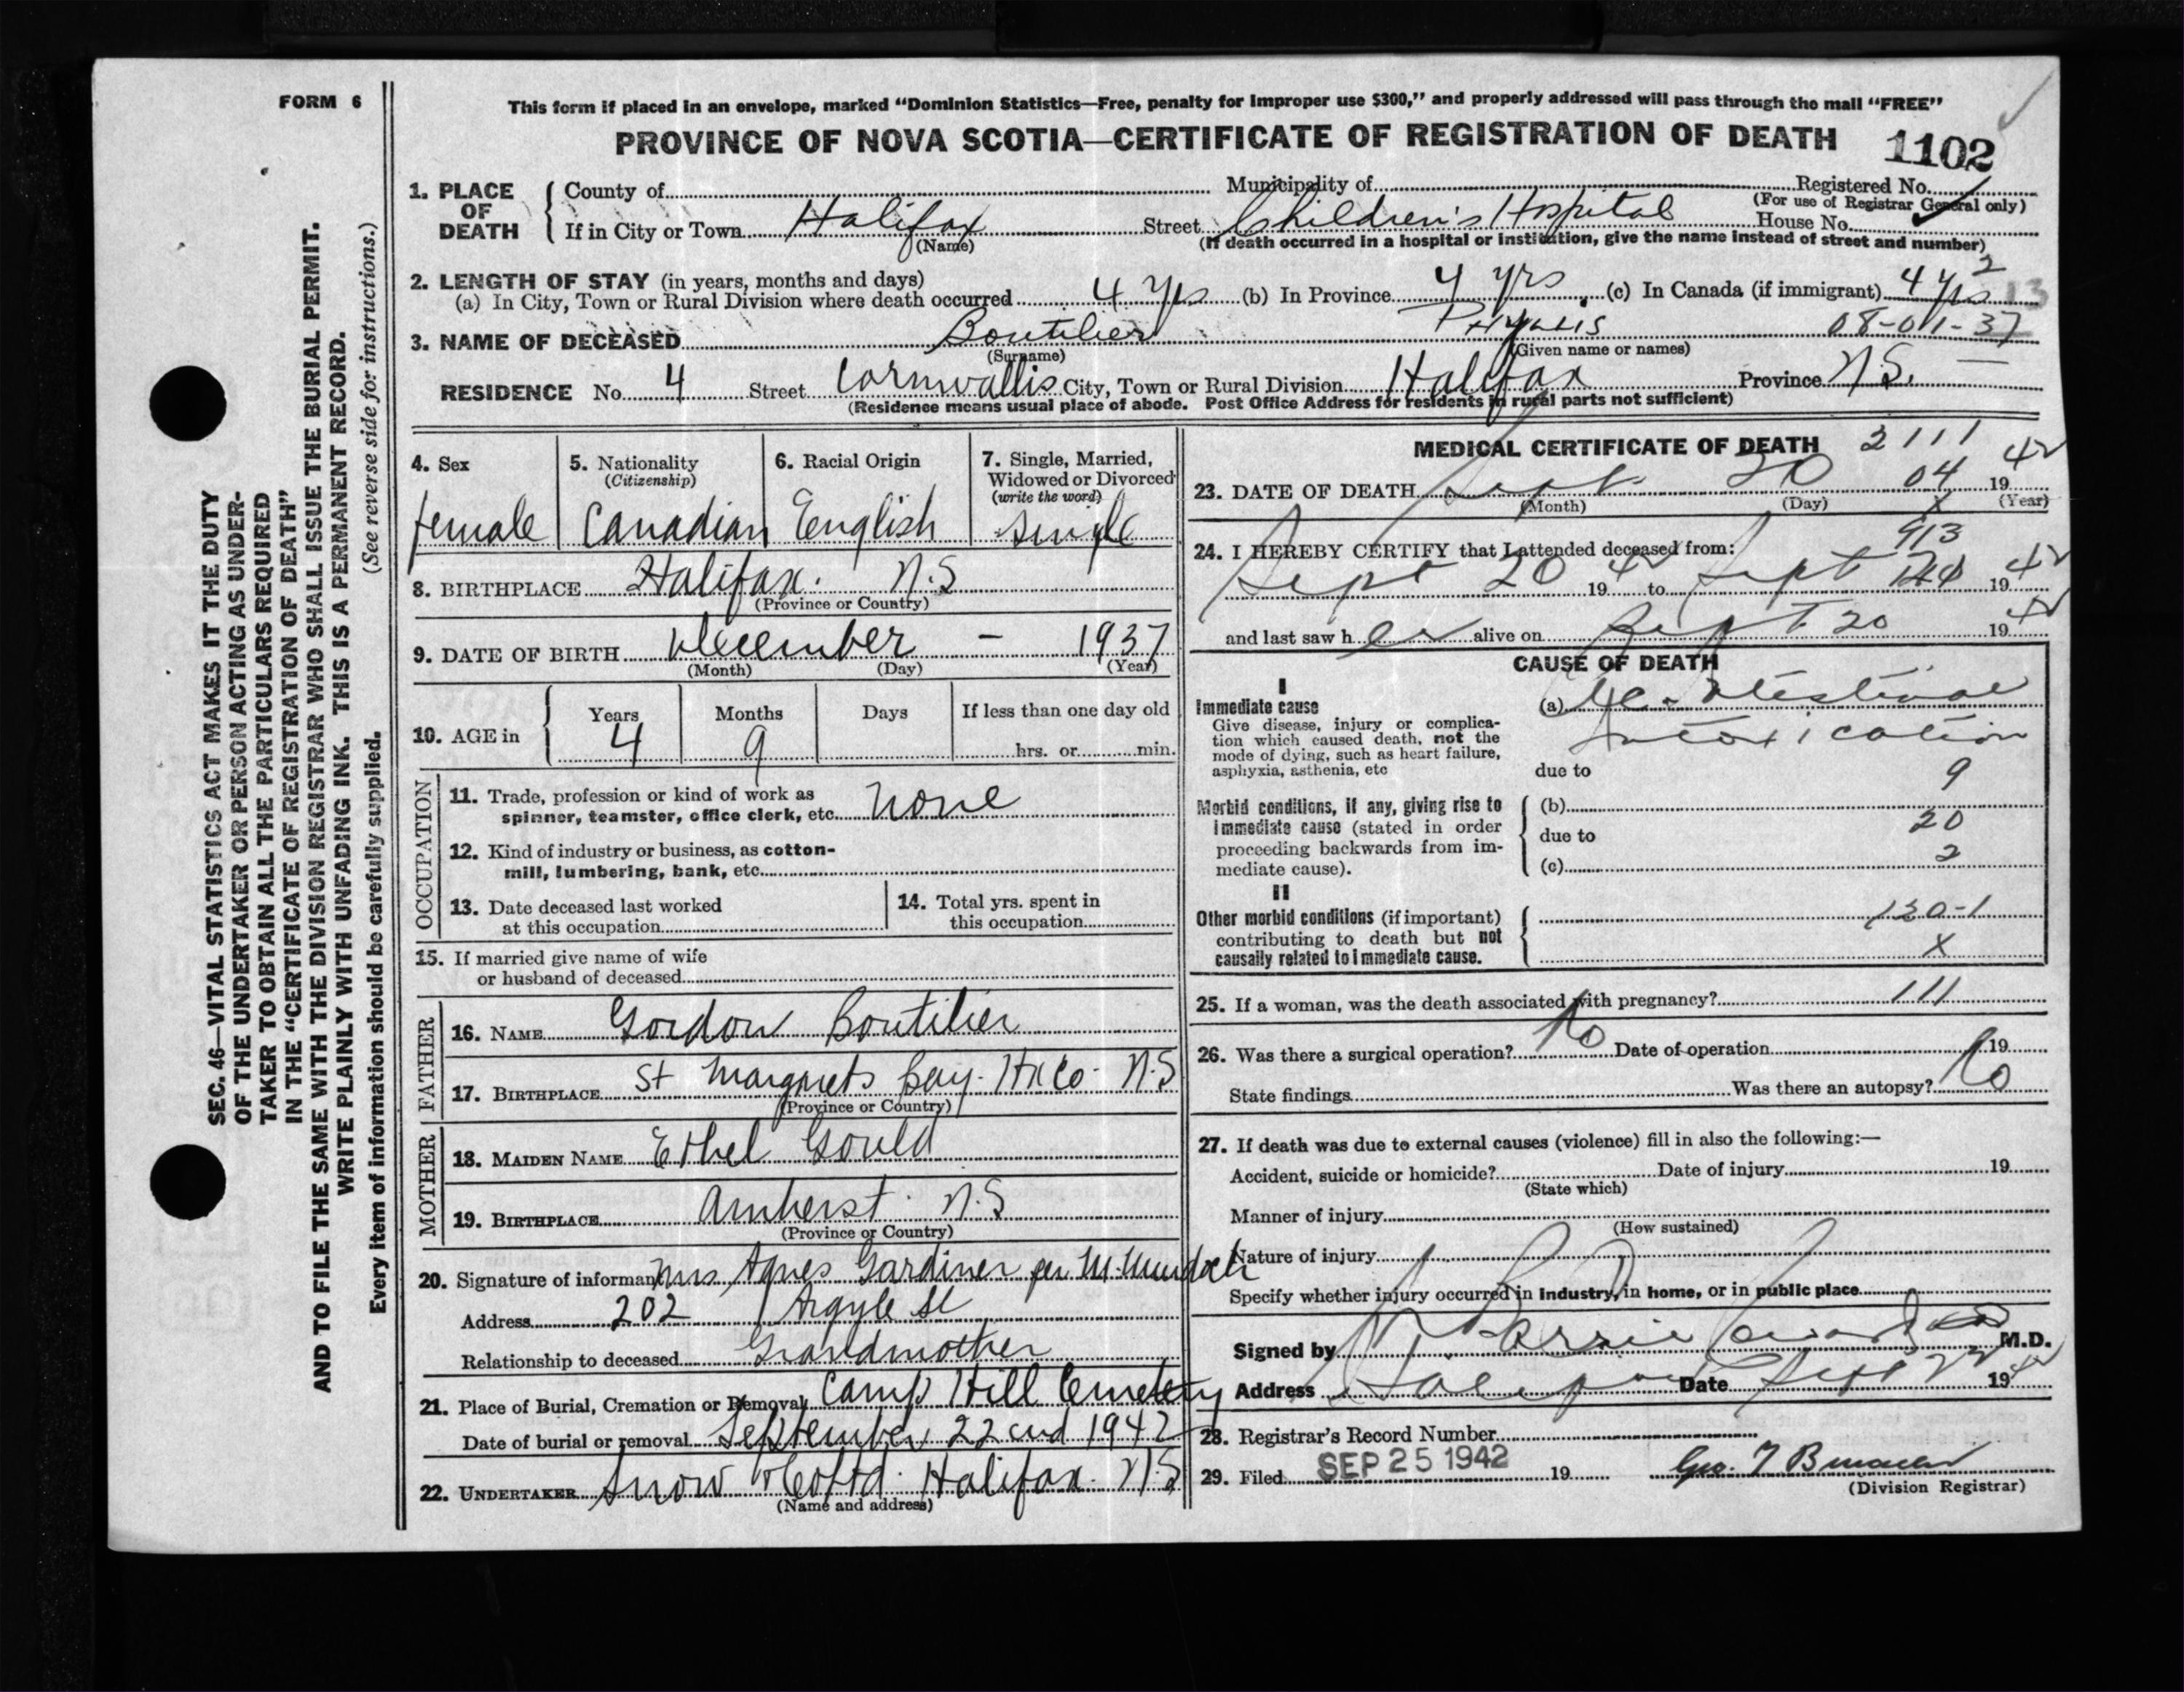 FORM 6
This form if placed in an envelope, marked “Dominion Statistics—Free, penalty for improper use $300,” and properly addressed will pass through the mail “FREE”
PROVINCE OF NOVA SCOTIA—CERTIFICATE OF REGISTRATION OF DEATH 1102
1. PLACE OF DEATH County of Municipality of Registered No.
(For use of Registrar General only)
If in City or Town Halifax Street Children's Hospital House No.
(Name) (If death occurred in a hospital or institution, give the name instead of street and number)
2. LENGTH OF STAY (in years, months and days)
(a) In City, Town or Rural Division where death occurred 4 yrs (b) In Province 4 yrs. (c) In Canada (if immigrant) 4 yrs 2 13
3. NAME OF DECEASED Boutilier Phyllis 08-01-37
(Surname) (Given name or names)
RESIDENCE No. 4 Street Cornwallis City, Town or Rural Division Halifax Province N.S. —
(Residence means usual place of abode. Post Office Address for residents in rural parts not sufficient)
4. Sex 5. Nationality (Citizenship) 6. Racial Origin 7. Single, Married, Widowed or Divorced (write the word)
female Canadian English single
8. BIRTHPLACE Halifax. N.S
(Province or Country)
9. DATE OF BIRTH December – 1937
(Month) (Day) (Year)
10. AGE in Years Months Days If less than one day old
4 9 hrs. or min.
OCCUPATION
11. Trade, profession or kind of work as spinner, teamster, office clerk, etc. none
12. Kind of industry or business, as cotton-mill, lumbering, bank, etc.
13. Date deceased last worked at this occupation
14. Total yrs. spent in this occupation
15. If married give name of wife or husband of deceased
FATHER
16. NAME Gordon Boutilier
17. BIRTHPLACE St Margarets Bay. Hx Co. N.S
(Province or Country)
MOTHER
18. MAIDEN NAME Ethel Gould
19. BIRTHPLACE Amherst. N.S
(Province or Country)
20. Signature of informant Mrs Agnes Gardiner per M. Murdoch
Address 202 Argyle St
Relationship to deceased Grandmother
21. Place of Burial, Cremation or Removal Camp Hill Cemetery
Date of burial or removal September 22nd 1942
22. UNDERTAKER Snow & Co Ltd. Halifax. N.S
(Name and address)
MEDICAL CERTIFICATE OF DEATH 2111
23. DATE OF DEATH Sept 20 04 1942
(Month) (Day) (Year)
X
913
24. I HEREBY CERTIFY that I attended deceased from:
Sept 20 1942 to Sept 1942
and last saw her alive on Sept 20 1942
CAUSE OF DEATH
I
Immediate cause
Give disease, injury or complication which caused death, not the mode of dying, such as heart failure, asphyxia, asthenia, etc
(a) Intestinal
Intoxication
due to 9
Morbid conditions, if any, giving rise to immediate cause (stated in order proceeding backwards from immediate cause).
(b)
due to 20
(c) 2
II
Other morbid conditions (if important) contributing to death but not causally related to immediate cause.
120-1
X
25. If a woman, was the death associated with pregnancy? 111
26. Was there a surgical operation? No Date of operation 19
State findings Was there an autopsy? No
27. If death was due to external causes (violence) fill in also the following:—
Accident, suicide or homicide? Date of injury 19
(State which)
Manner of injury
(How sustained)
Nature of injury
Specify whether injury occurred in industry, in home, or in public place
Signed by M.D.
Address Halifax Date Sept 22 1942
28. Registrar's Record Number
29. Filed SEP 25 1942 19 Geo. T
(Division Registrar)
SEC. 46—VITAL STATISTICS ACT MAKES IT THE DUTY
OF THE UNDERTAKER OR PERSON ACTING AS UNDER-
TAKER TO OBTAIN ALL THE PARTICULARS REQUIRED
IN THE “CERTIFICATE OF REGISTRATION OF DEATH”
AND TO FILE THE SAME WITH THE DIVISION REGISTRAR WHO SHALL ISSUE THE BURIAL PERMIT.
WRITE PLAINLY WITH UNFADING INK. THIS IS A PERMANENT RECORD.
Every item of information should be carefully supplied. (See reverse side for instructions.)